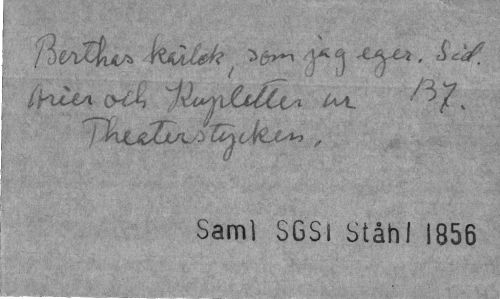 Berthas kärlek, som jag eger. Sid.
Arier och Kupletter ur 137.
Theaterstycken.
Saml SGSI Ståhl 1856